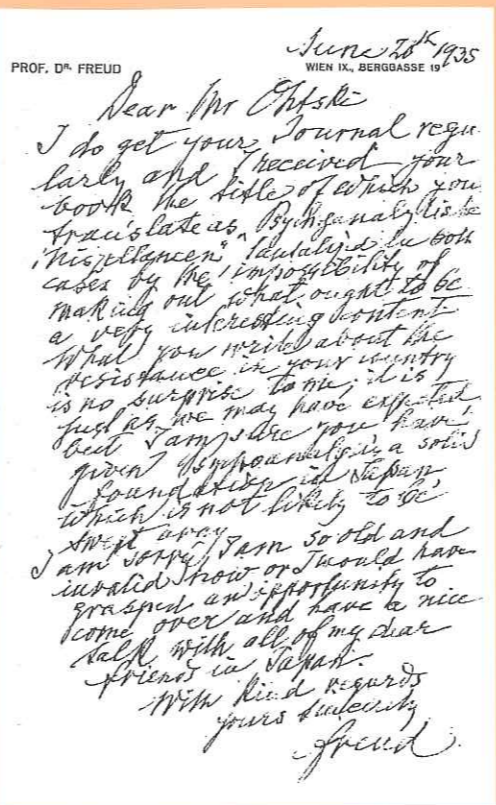 June 20th 1935
PROF. DR. FREUD
WIEN IX., BERGGASSE 19
Dear Mr Ohtski
I do get your Journal regu-
larly and I received your
book the title of which you
translate as "Psychoanalytische
Miszellaneen" tantalized in both
cases by the impossibility of
making out what ought to be
a very interesting content
What you write about the
resistance in your country
is no surprise to me, it is
just as we may have expected
but I am sure you have
given Psychoanalysis a solid
foundation in Japan
which is not likely to be
swept away
I am sorry, I am so old and
invalid now or I would have
grasped an opportunity to
come over and have a nice
talk with all of my dear
friends in Japan.
With kind regards
yours sincerely
Freud